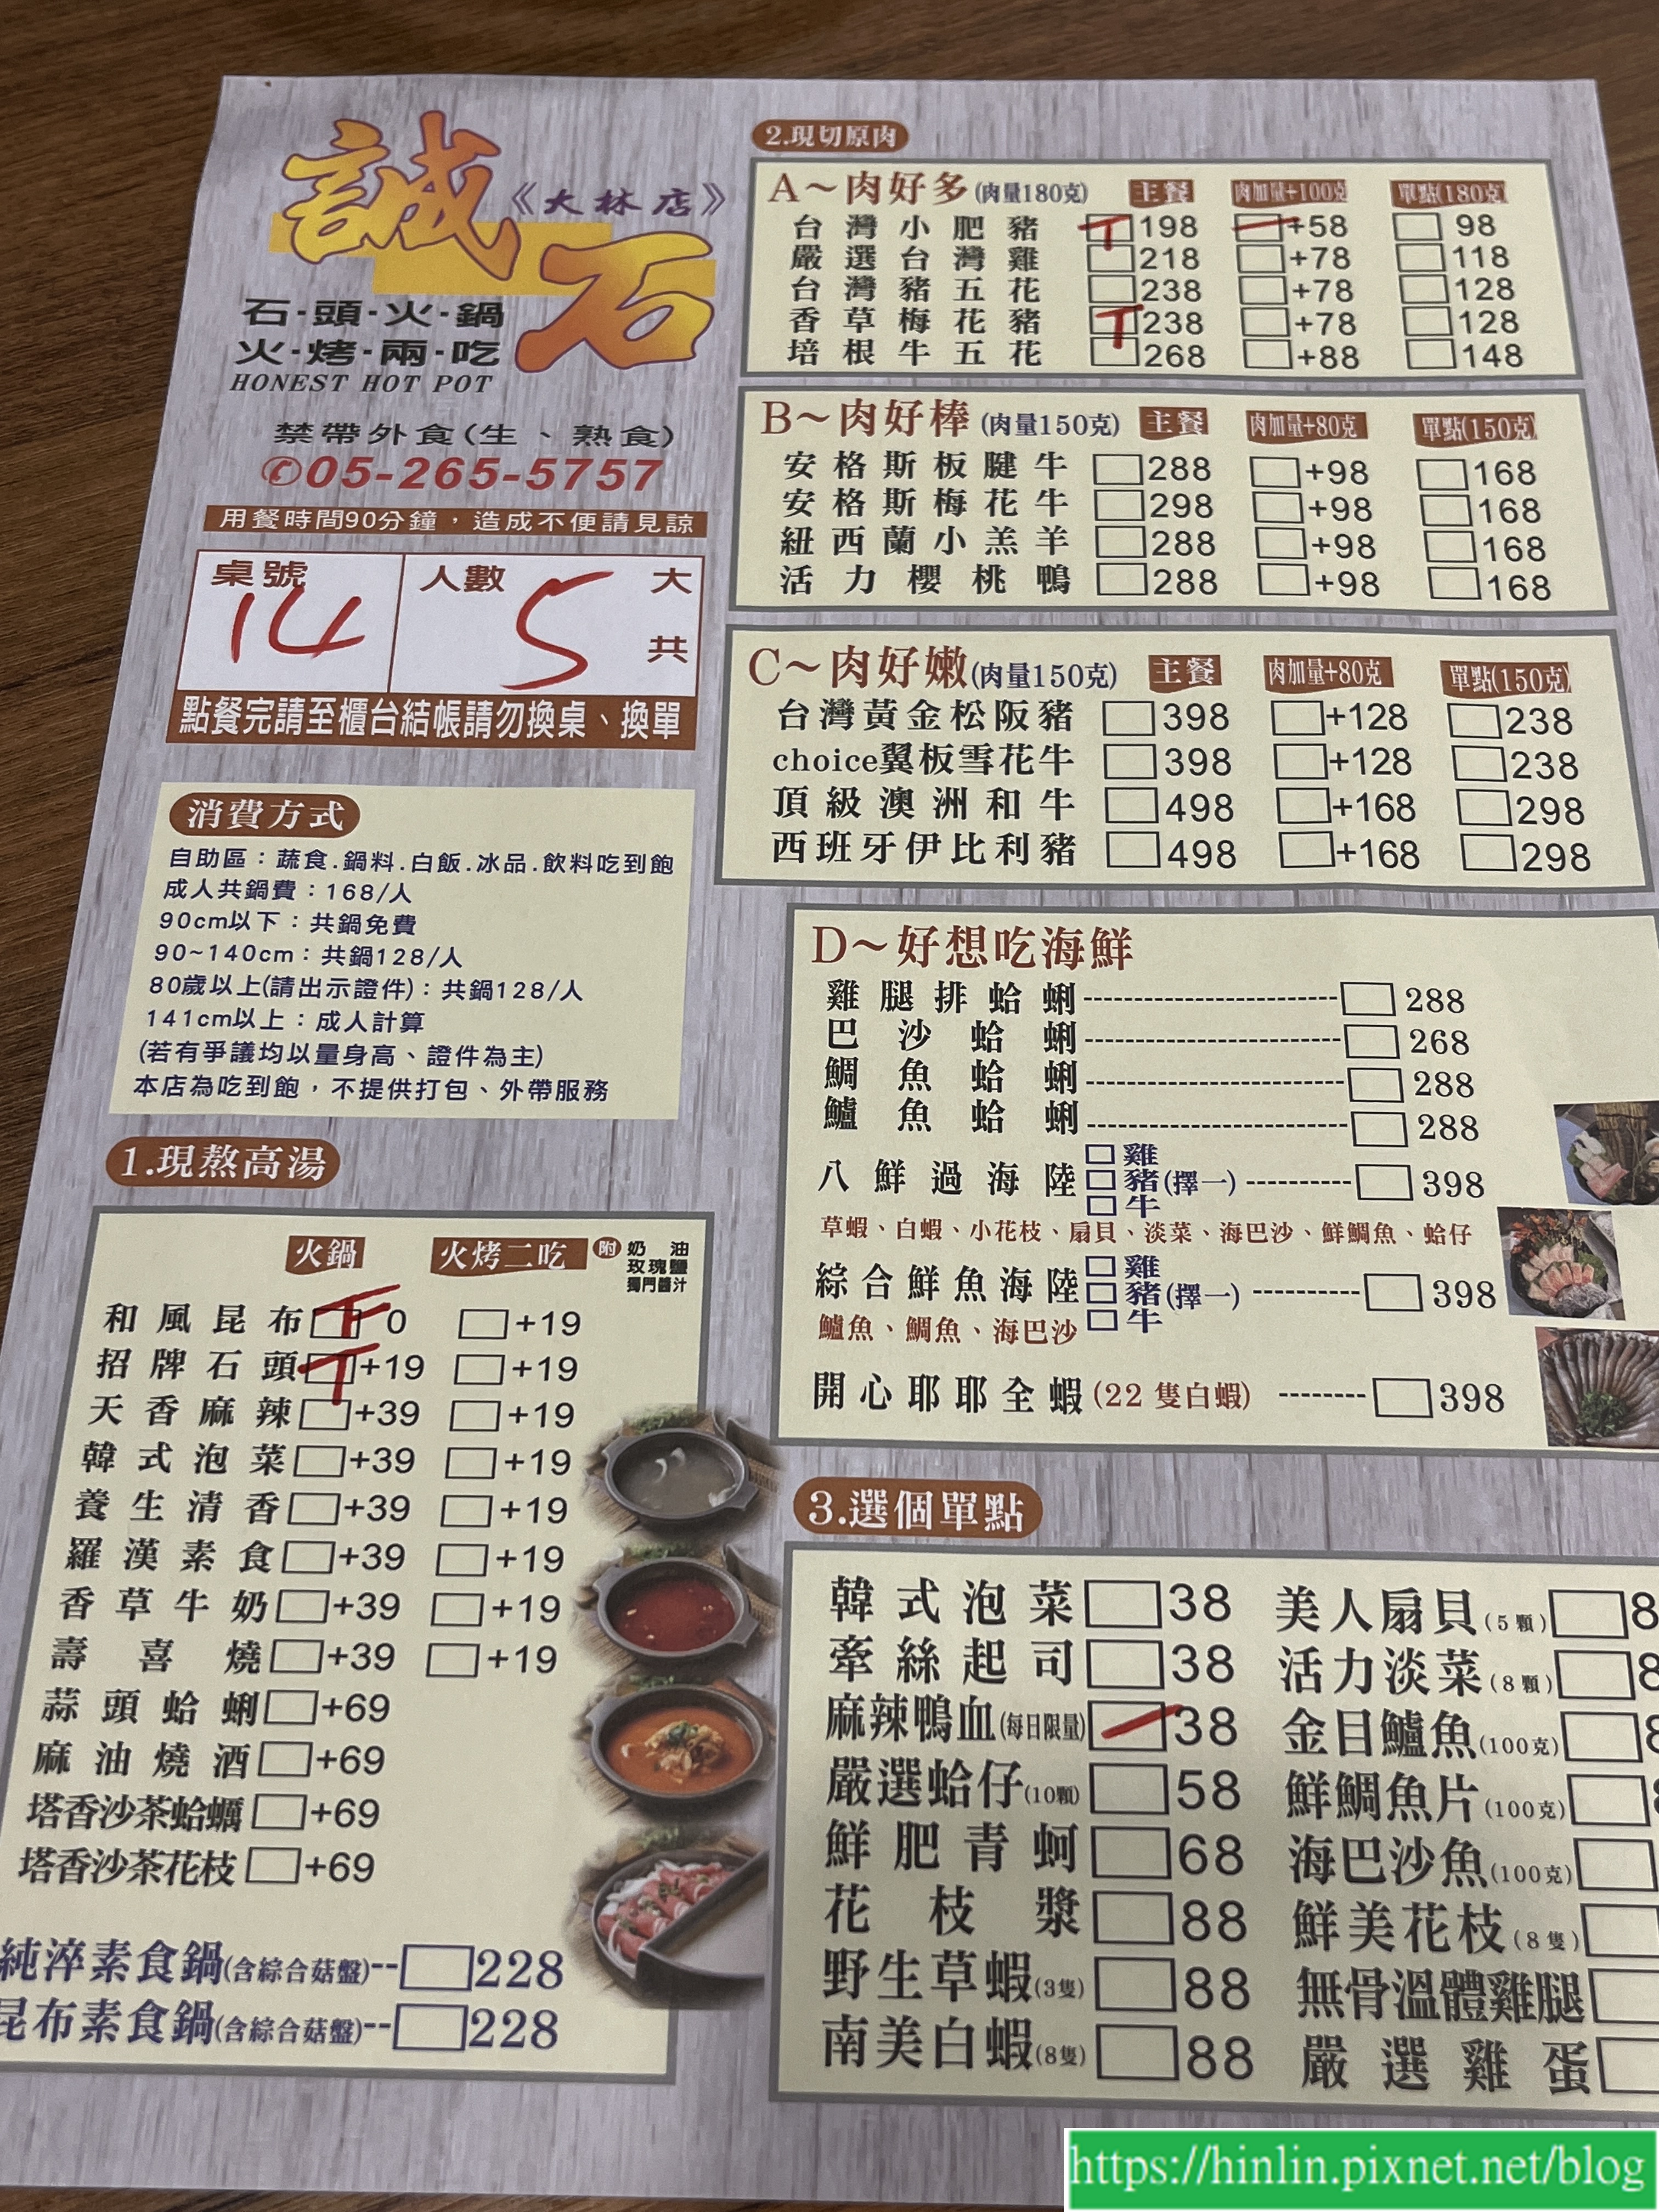 誠石
《大林店》
石·頭·火·鍋
火·烤·兩·吃
HONEST HOT POT
禁帶外食(生、熟食)
✆05-265-5757
用餐時間90分鐘，造成不便請見諒
桌號 14 人數 5 大 共
點餐完請至櫃台結帳請勿換桌、換單
消費方式
自助區：蔬食.鍋料.白飯.冰品.飲料吃到飽
成人共鍋費：168/人
90cm以下：共鍋免費
90~140cm：共鍋128/人
80歲以上(請出示證件)：共鍋128/人
141cm以上：成人計算
(若有爭議均以量身高、證件為主)
本店為吃到飽，不提供打包、外帶服務
1.現熬高湯
火鍋 火烤二吃 附 奶油 玫瑰鹽 獨門醬汁
和風昆布 0 +19
招牌石頭 +19 +19
天香麻辣 +39 +19
韓式泡菜 +39 +19
養生清香 +39 +19
羅漢素食 +39 +19
香草牛奶 +39 +19
壽喜燒 +39 +19
蒜頭蛤蜊 +69
麻油燒酒 +69
塔香沙茶蛤蠣 +69
塔香沙茶花枝 +69
純淬素食鍋(含綜合菇盤)-- 228
昆布素食鍋(含綜合菇盤)-- 228
2.現切原肉
A～肉好多(肉量180克) 主餐 肉加量+100克 單點(180克)
台灣小肥豬 198 +58 98
嚴選台灣雞 218 +78 118
台灣豬五花 238 +78 128
香草梅花豬 238 +78 128
培根牛五花 268 +88 148
B～肉好棒(肉量150克) 主餐 肉加量+80克 單點(150克)
安格斯板腱牛 288 +98 168
安格斯梅花牛 298 +98 168
紐西蘭小羔羊 288 +98 168
活力櫻桃鴨 288 +98 168
C～肉好嫩(肉量150克) 主餐 肉加量+80克 單點(150克)
台灣黃金松阪豬 398 +128 238
choice翼板雪花牛 398 +128 238
頂級澳洲和牛 498 +168 298
西班牙伊比利豬 498 +168 298
D～好想吃海鮮
雞腿排蛤蜊 288
巴沙蛤蜊 268
鯛魚蛤蜊 288
鱸魚蛤蜊 288
八鮮過海陸 雞 豬 牛 (擇一) 398
草蝦、白蝦、小花枝、扇貝、淡菜、海巴沙、鮮鯛魚、蛤仔
綜合鮮魚海陸 雞 豬 牛 (擇一) 398
鱸魚、鯛魚、海巴沙
開心耶耶全蝦(22 隻白蝦) 398
3.選個單點
韓式泡菜 38 美人扇貝(5顆) 8
牽絲起司 38 活力淡菜(8顆) 8
麻辣鴨血(每日限量) 38 金目鱸魚(100克) 8
嚴選蛤仔(10顆) 58 鮮鯛魚片(100克)
鮮肥青蚵 68 海巴沙魚(100克)
花枝漿 88 鮮美花枝(8隻)
野生草蝦(3隻) 88 無骨溫體雞腿
南美白蝦(8隻) 88 嚴選雞蛋
https://hinlin.pixnet.net/blog